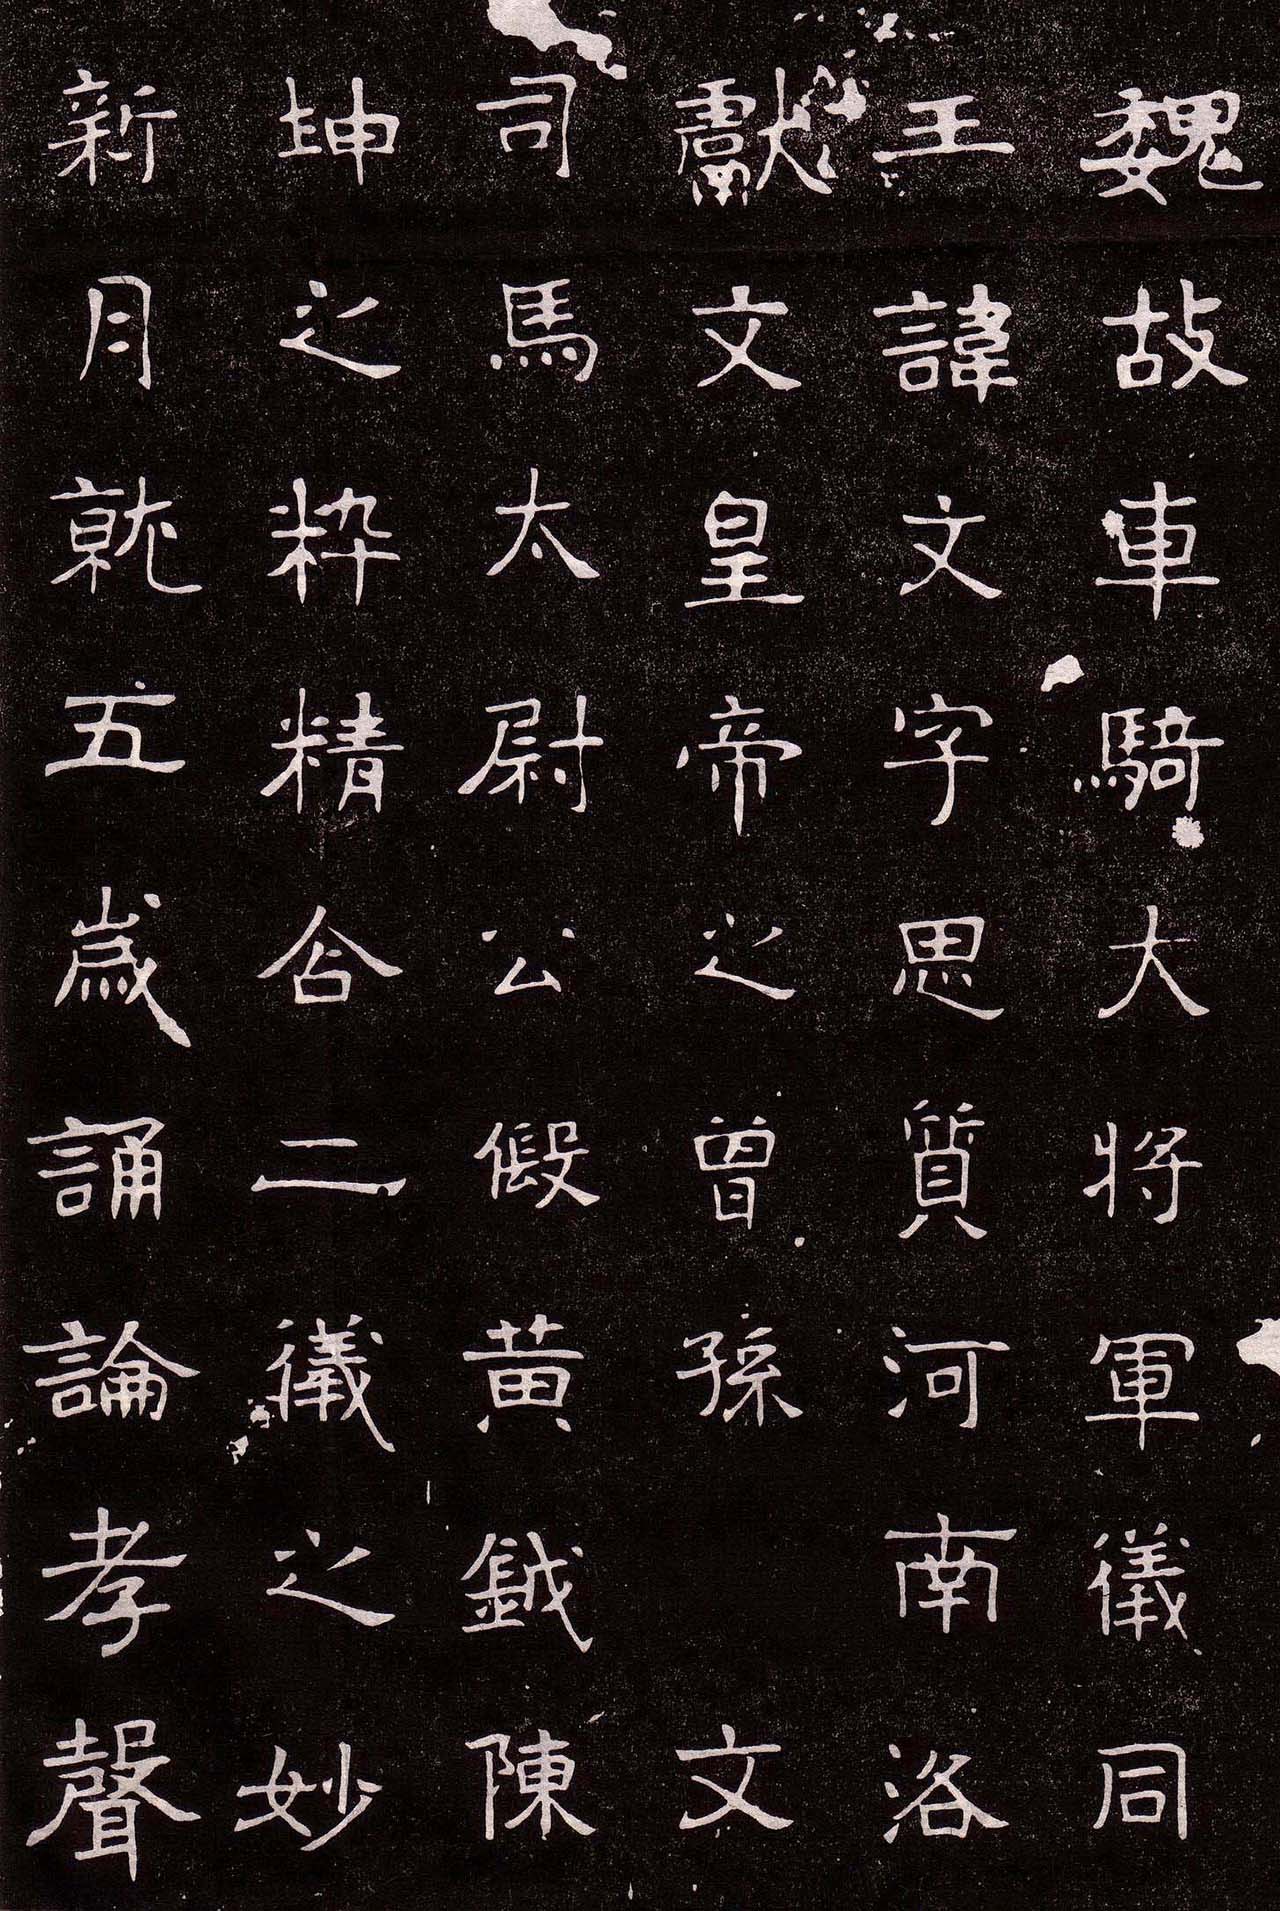 魏故車騎大將軍儀同
王諱文字思質河南洛
獻文皇帝之曾孫 文
司馬太尉公假黃鉞陳
坤之粹精含二儀之妙
新月就五歲誦論孝聲